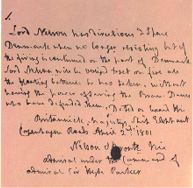 Lord Nelson has directions to spare
Denmark when no longer resisting but if
the firing is continued on the part of Denmark
Lord Nelson will be obliged to set on fire all
the floating batteries he has taken, without
having the power of saving the Brave Danes
who have defended them. Dated on board His
Britannick Majestys Ship Elephant
Copenhagen Roads April 2nd 1801
Nelson &
Admiral under the Command of
Admiral Sir Hyde Parker